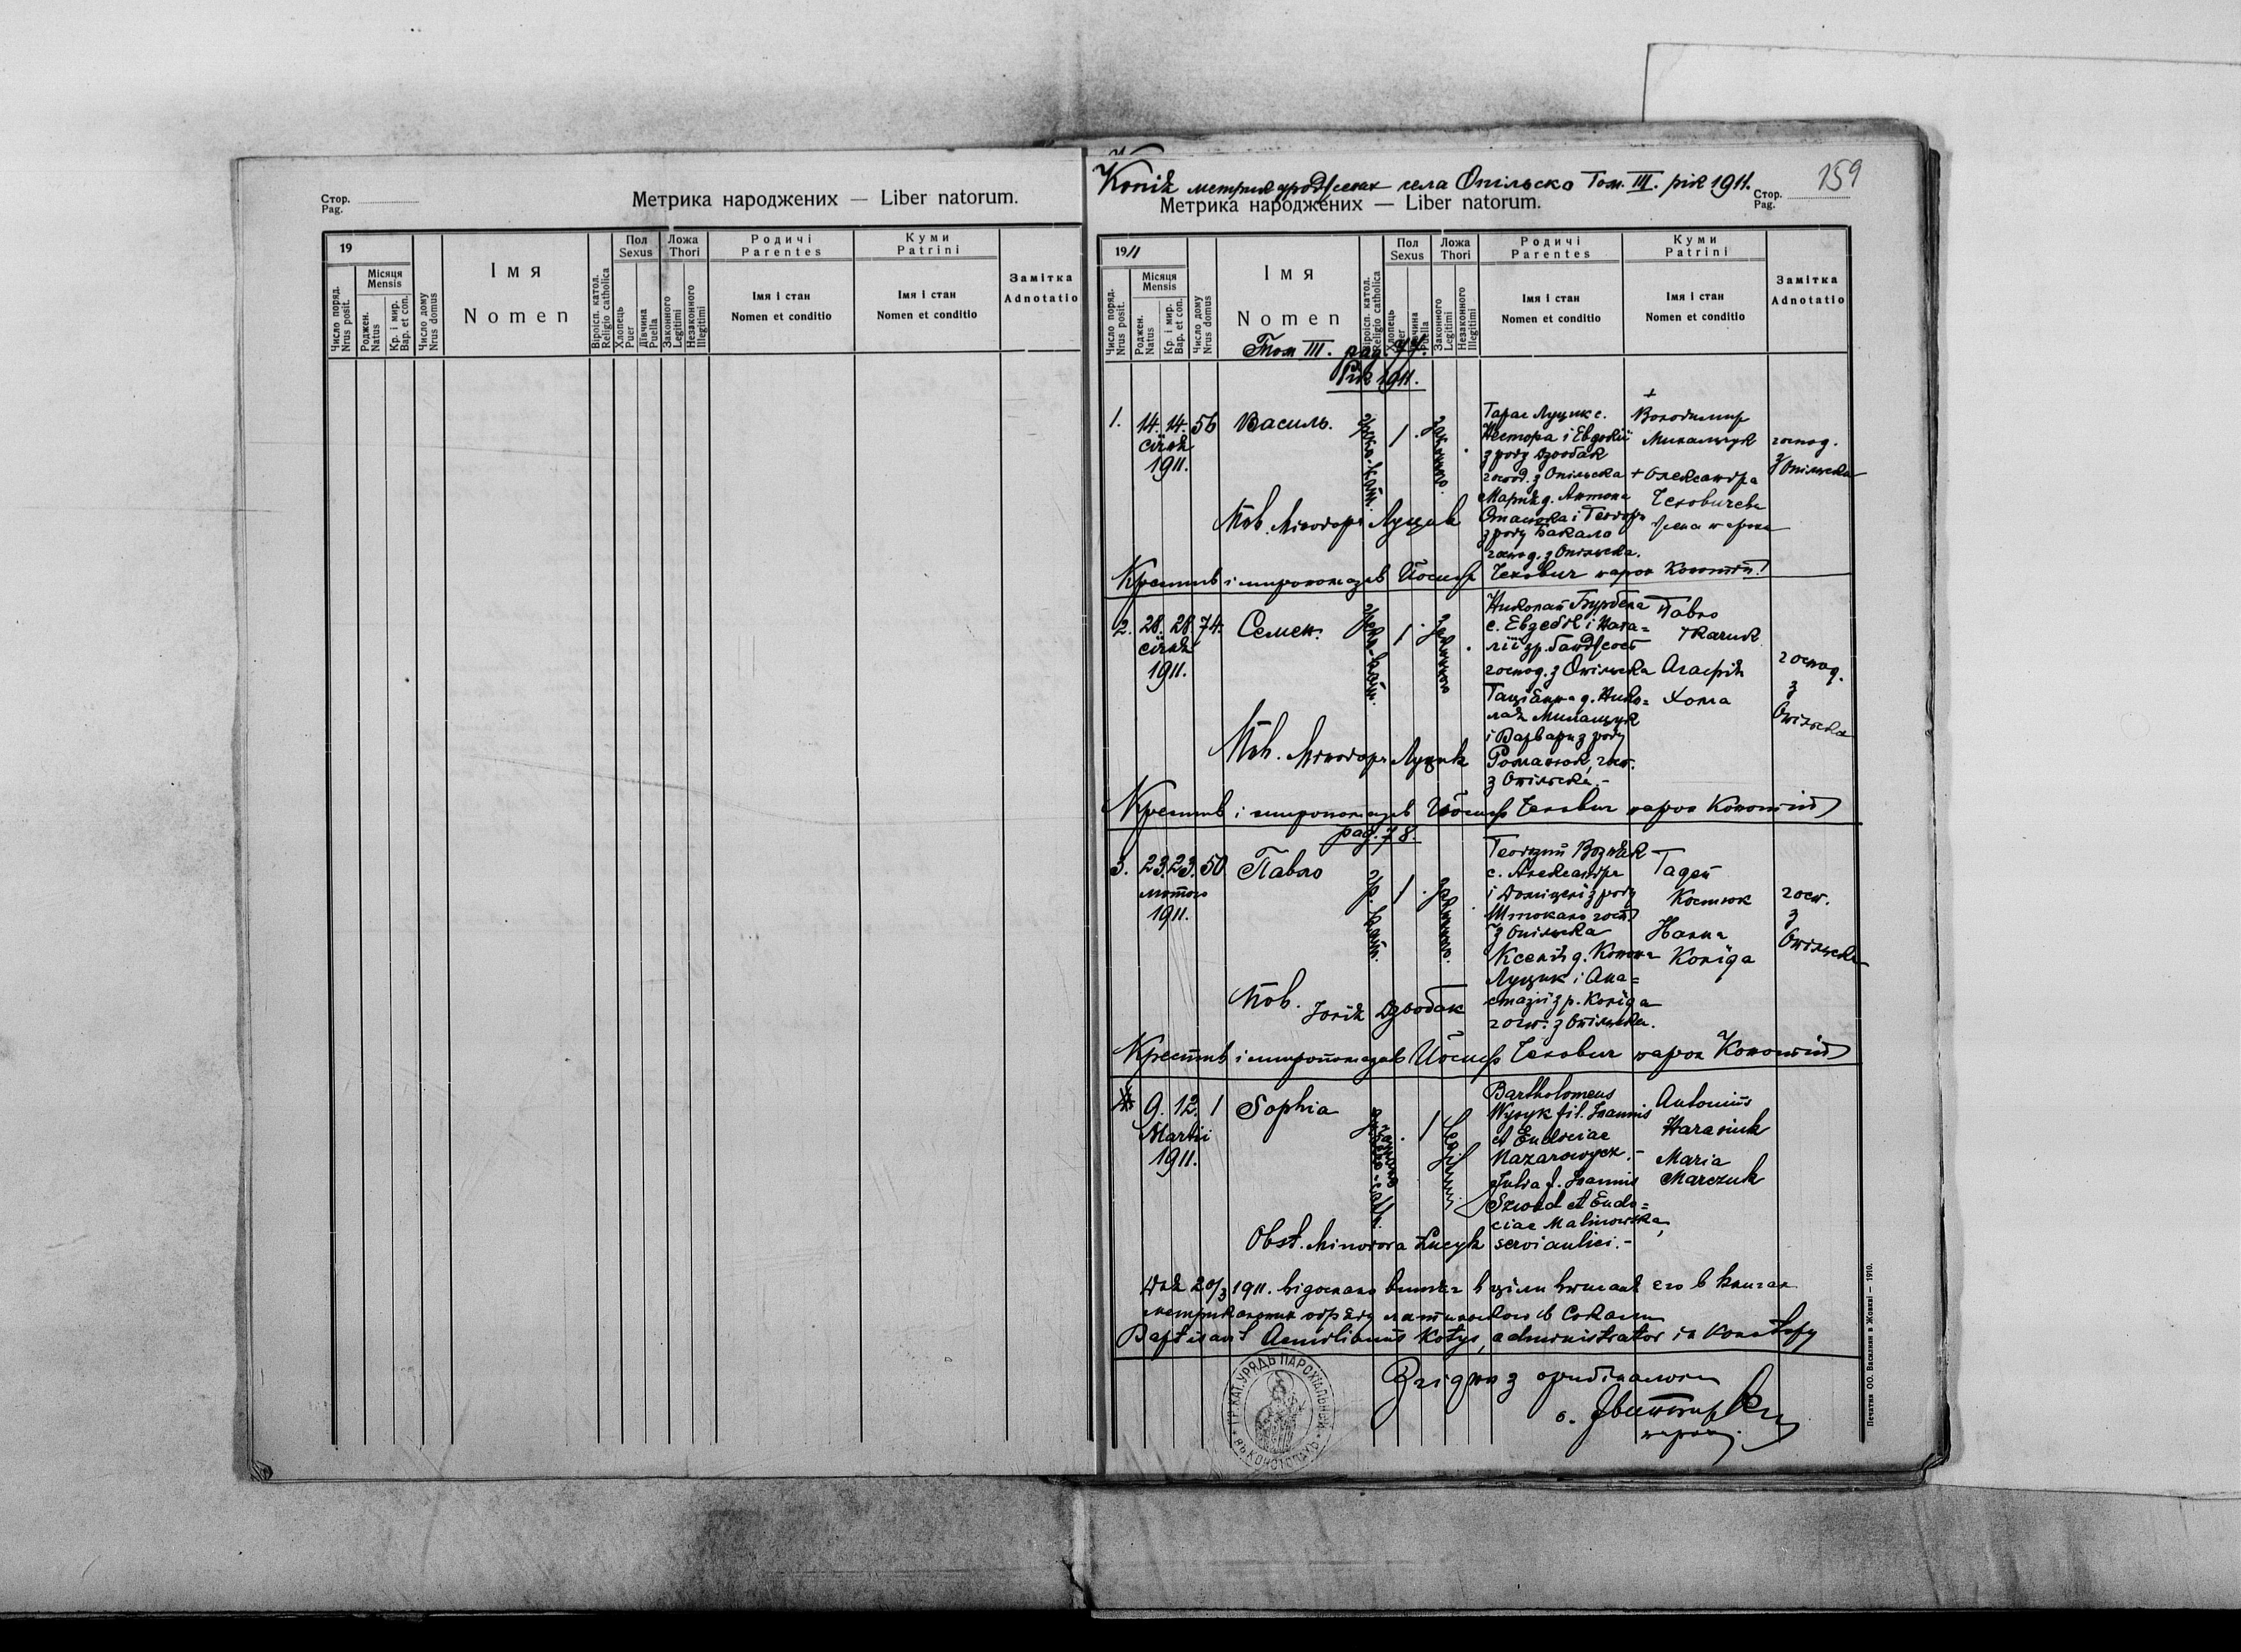 Стор.
Pag.
Метрика народжених — Liber natorum.
19
Число поряд.
Nrus posit.
Місяця
Mensis
Роджен.
Natus
Кр. і мир.
Bap. et con.
Число дому
Nrus domus
Імя
Nomen
Віроісп. катол.
Religio catholica
Пол
Sexus
Хлопець
Puer
Дівчина
Puella
Ложа
Thori
Законного
Legitimi
Незаконного
Illegitimi
Родичі
Parentes
Імя і стан
Nomen et conditio
Куми
Patrini
Імя і стан
Nomen et conditio
Замітка
Adnotatio
Копія метрик уроджених села Опільско Том. III. рік 1911.
159
Стор.
Pag.
Метрика народжених — Liber natorum.
1911
Число поряд.
Nrus posit.
Місяця
Mensis
Роджен.
Natus
Кр. і мир.
Bap. et con.
Число дому
Nrus domus
Імя
Nomen
Віроісп. катол.
Religio catholica
Пол
Sexus
Хлопець
Puer
Дівчина
Puella
Ложа
Thori
Законного
Legitimi
Незаконного
Illegitimi
Родичі
Parentes
Імя і стан
Nomen et conditio
Куми
Patrini
Імя і стан
Nomen et conditio
Замітка
Adnotatio
Том III. pag. 77.
Рік 1911.
1. 14. 14. 56 Василь.
січня
1911.
греко-кат.
1
законного.
Тарас Луцик с.
Нестора і Евдокії
з роду Дзюбак
господ. з Опільска
Марія д. Антона
з роду Бакало
господ. з Опільска.
+
Володимир
Михальчук
+ Олександра
Чеховичева
жена пароха
господ.
з Опільска
Пов. Мінодора Луцик
Крестив і миропомазав Йосиф Чехович парох Конотоп.
2. 28. 28. 74. Семен.
січня
1911.
греко-кат.
1
законного
Николай Бурбела
с. Евдокія і Ната=
господ. з Опільска
Тациянна д. Нико=
лая
і Варвари з роду
Романюк, госп.
з Опільска.-
Павло
Ткачик
Агафія
Хома
господ.
з
Опільска
Пов. Мінодора Луцик
Крестив і миропомазав Йосиф Чехович парох Конотоп
pag. 78.
3. 23. 23. 50 Павло
лютого
1911.
гр. кат.
1
законного.
Георгий Возняк
с. Александра
і з роду
Штокало госп.
з Опільска
Ксенія д. Конона
Луцик і Ана=
стазії з р. Коліда
госп. з Опільска.
Тадей
Костюк
Нанна
Коліда
госп.
з
Опільска
Пов. Юлія Дзюбак
Крестив і миропомазав Йосиф Чехович парох Конотоп
9. 12. 1 Sophia
Martii
1911.
1
Legitimi
Bartholomeus
Wyzyk fil. Joannis
et Eudociae
Nazarowycz.-
Julia f. Joannis
Szwed et Eudo=
ciae Malinowska,
servi aulici.-
Antonius
Harasiuk
Maria
Marczuk
Obst. Minodora Łucyk
Дня 20/3 1911. вислано витяг в ціли вписаня его в книгах
метрикальних обряду латинского в Сокали
Baptisavit Aemilianus Kotys, administrator in Konotopy
Згідно з оригіналом
о.
парох.
ГР. КАТ. УРЯДЪ ПАРОХІАЛЬНЫЙ ВЪ КОНОТОПАХЪ
Печатня ОО. Василиян в Жовкві — 1910.